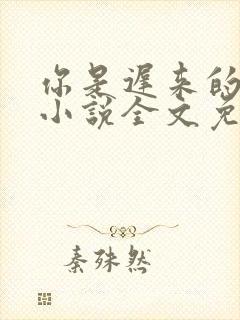 你是遲来的
小說全文免
秦殊然